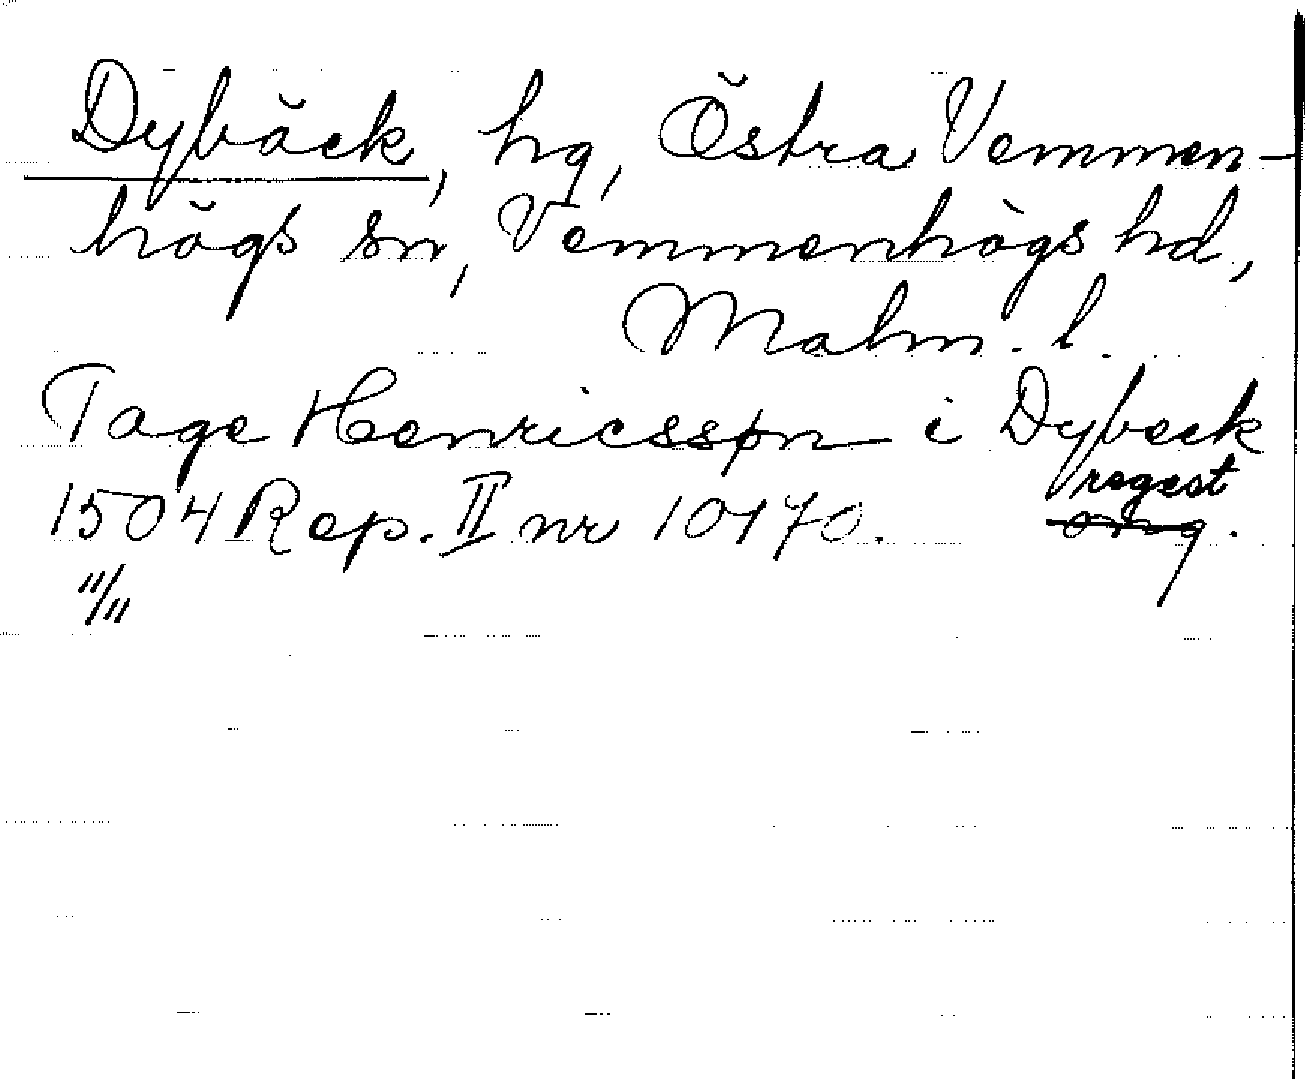 Dybäck, hg, Östra Vemmen-
högs sn, Vemmenhögs hd,
Malm. l.
Tage Henricsspn i Dybeck
1504 Rep. II nr 10170. regest
orig.
"/"